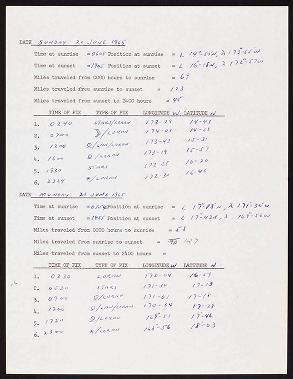 DATE SUNDAY 20 JUNE 1965
Time at sunrise =0605 Position at sunrise = L 14-50N, λ 173-55W
Time at sunset =1905 Position at sunset = L 16-18N, λ 172-57W
Miles traveled from 0000 hours to sunrise = 69
Miles traveled from sunrise to sunset = 123
Miles traveled from sunset to 2400 hours = 45
TIME OF FIX TYPE OF FIX LONGITUDE W LATITUDE N
1. 0240 STARS/LORAN 173-29 14-43
2. 0700 D/LORAN 174-03 14-58
3. 1200 D/VN/LORAN 173-43 15-31
4. 1600 D/LORAN 173-19 15-57
5. 1930 STARS 172-55 16-20
6. 2324 */LORAN 172-30 16-46
DATE MONDAY 21 JUNE 1965
Time at sunrise =0556 Position at sunrise = L 17-13N, λ 171-34W
Time at sunset =1855 Position at sunset = L 17-42N, λ 169-56W
Miles traveled from 0000 hours to sunrise = 53
Miles traveled from sunrise to sunset = 107
Miles traveled from sunset to 2400 hours =
TIME OF FIX TYPE OF FIX LONGITUDE W LATITUDE N
1. 0230 LORAN 172-04 16-59
2. 0530 STARS 171-34 17-13
3. 0900 D/LORAN 171-01 17-15
4. 1200 D/VN/LORAN 170-54 17-28
5. 1720 D/LORAN 169-51 17-46
6. 2300 */LORAN 169-56 18-03